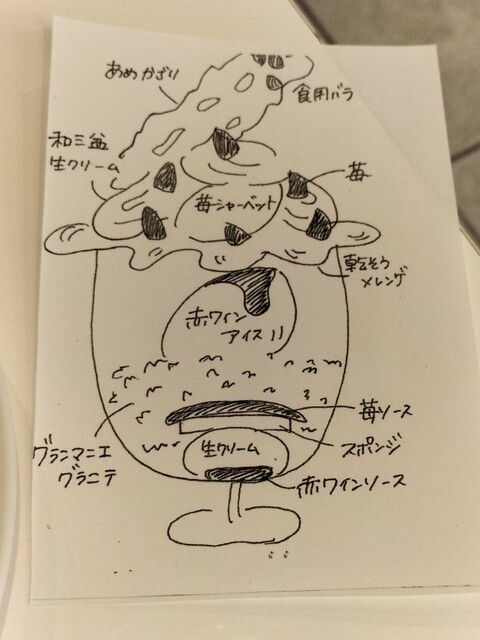 あめかざり
食用バラ
和三盆
生クリーム
苺
苺シャーベット
乾そう
メレンゲ
赤ワイン
アイス
苺ソース
グランマニエ
グラニテ
スポンジ
生クリーム
赤ワインソース